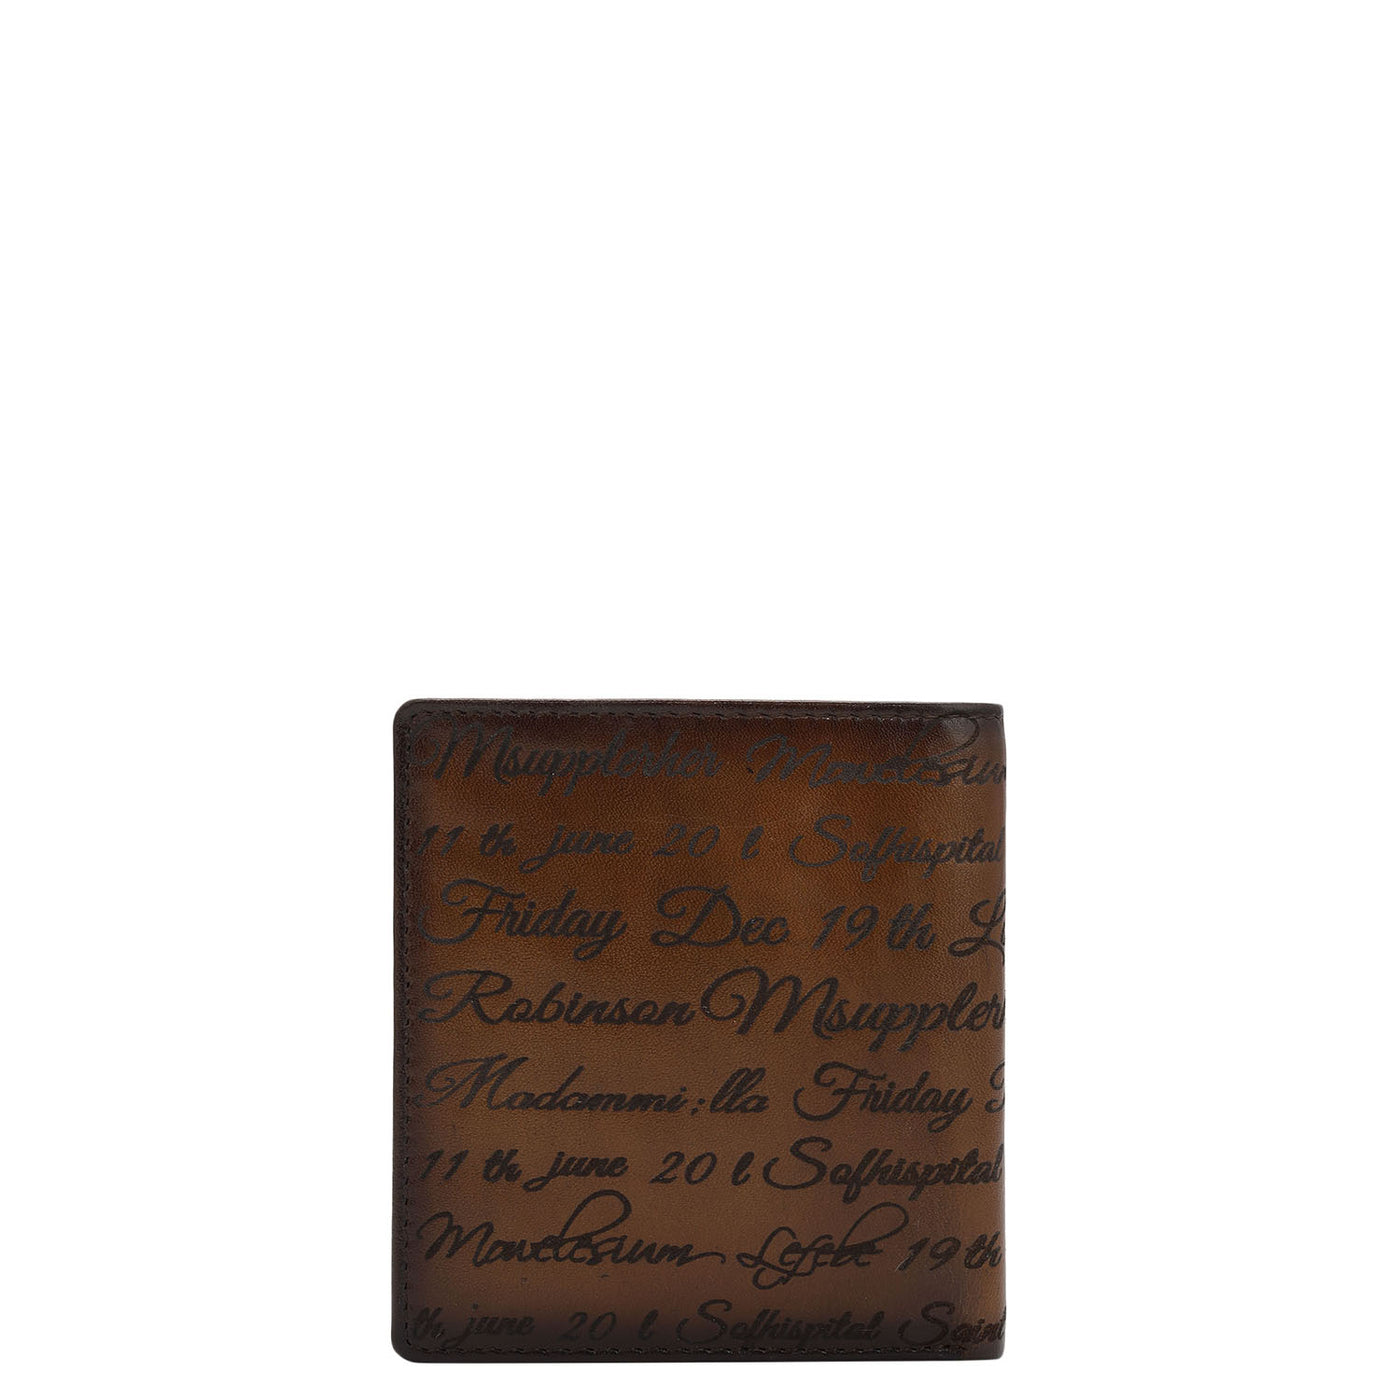 Msupplerher Mouelesium
11 th june 20 l Sofhispital
Friday Dec 19 th
Robinson Msuppler
Madammi;lla Friday
11 th june 20 l Sofhispital
Mouelesium Lefebe 19 th
th june 20 l Sofhispital Saint